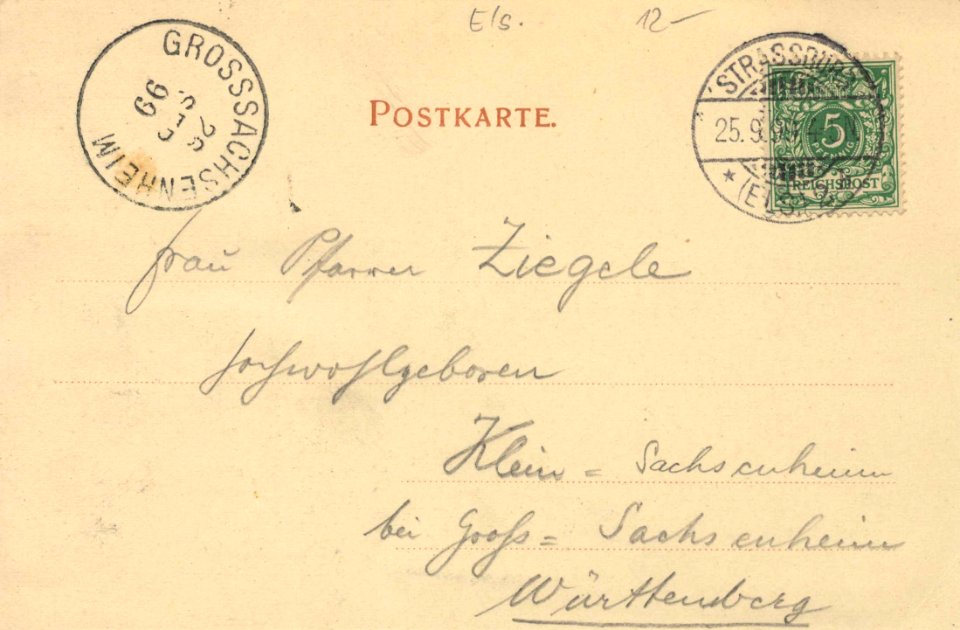 Els. 12-
GROSSSACHSENHEIM
26 SEP 99
POSTKARTE.
STRASSBURG
25. 9. 99
* (ELS.)
5
PFENNIG
REICHSPOST
Frau Pfarrer Ziegele
Hochwohlgeboren
Klein = Sachsenheim
bei Gross = Sachsenheim
Württemberg